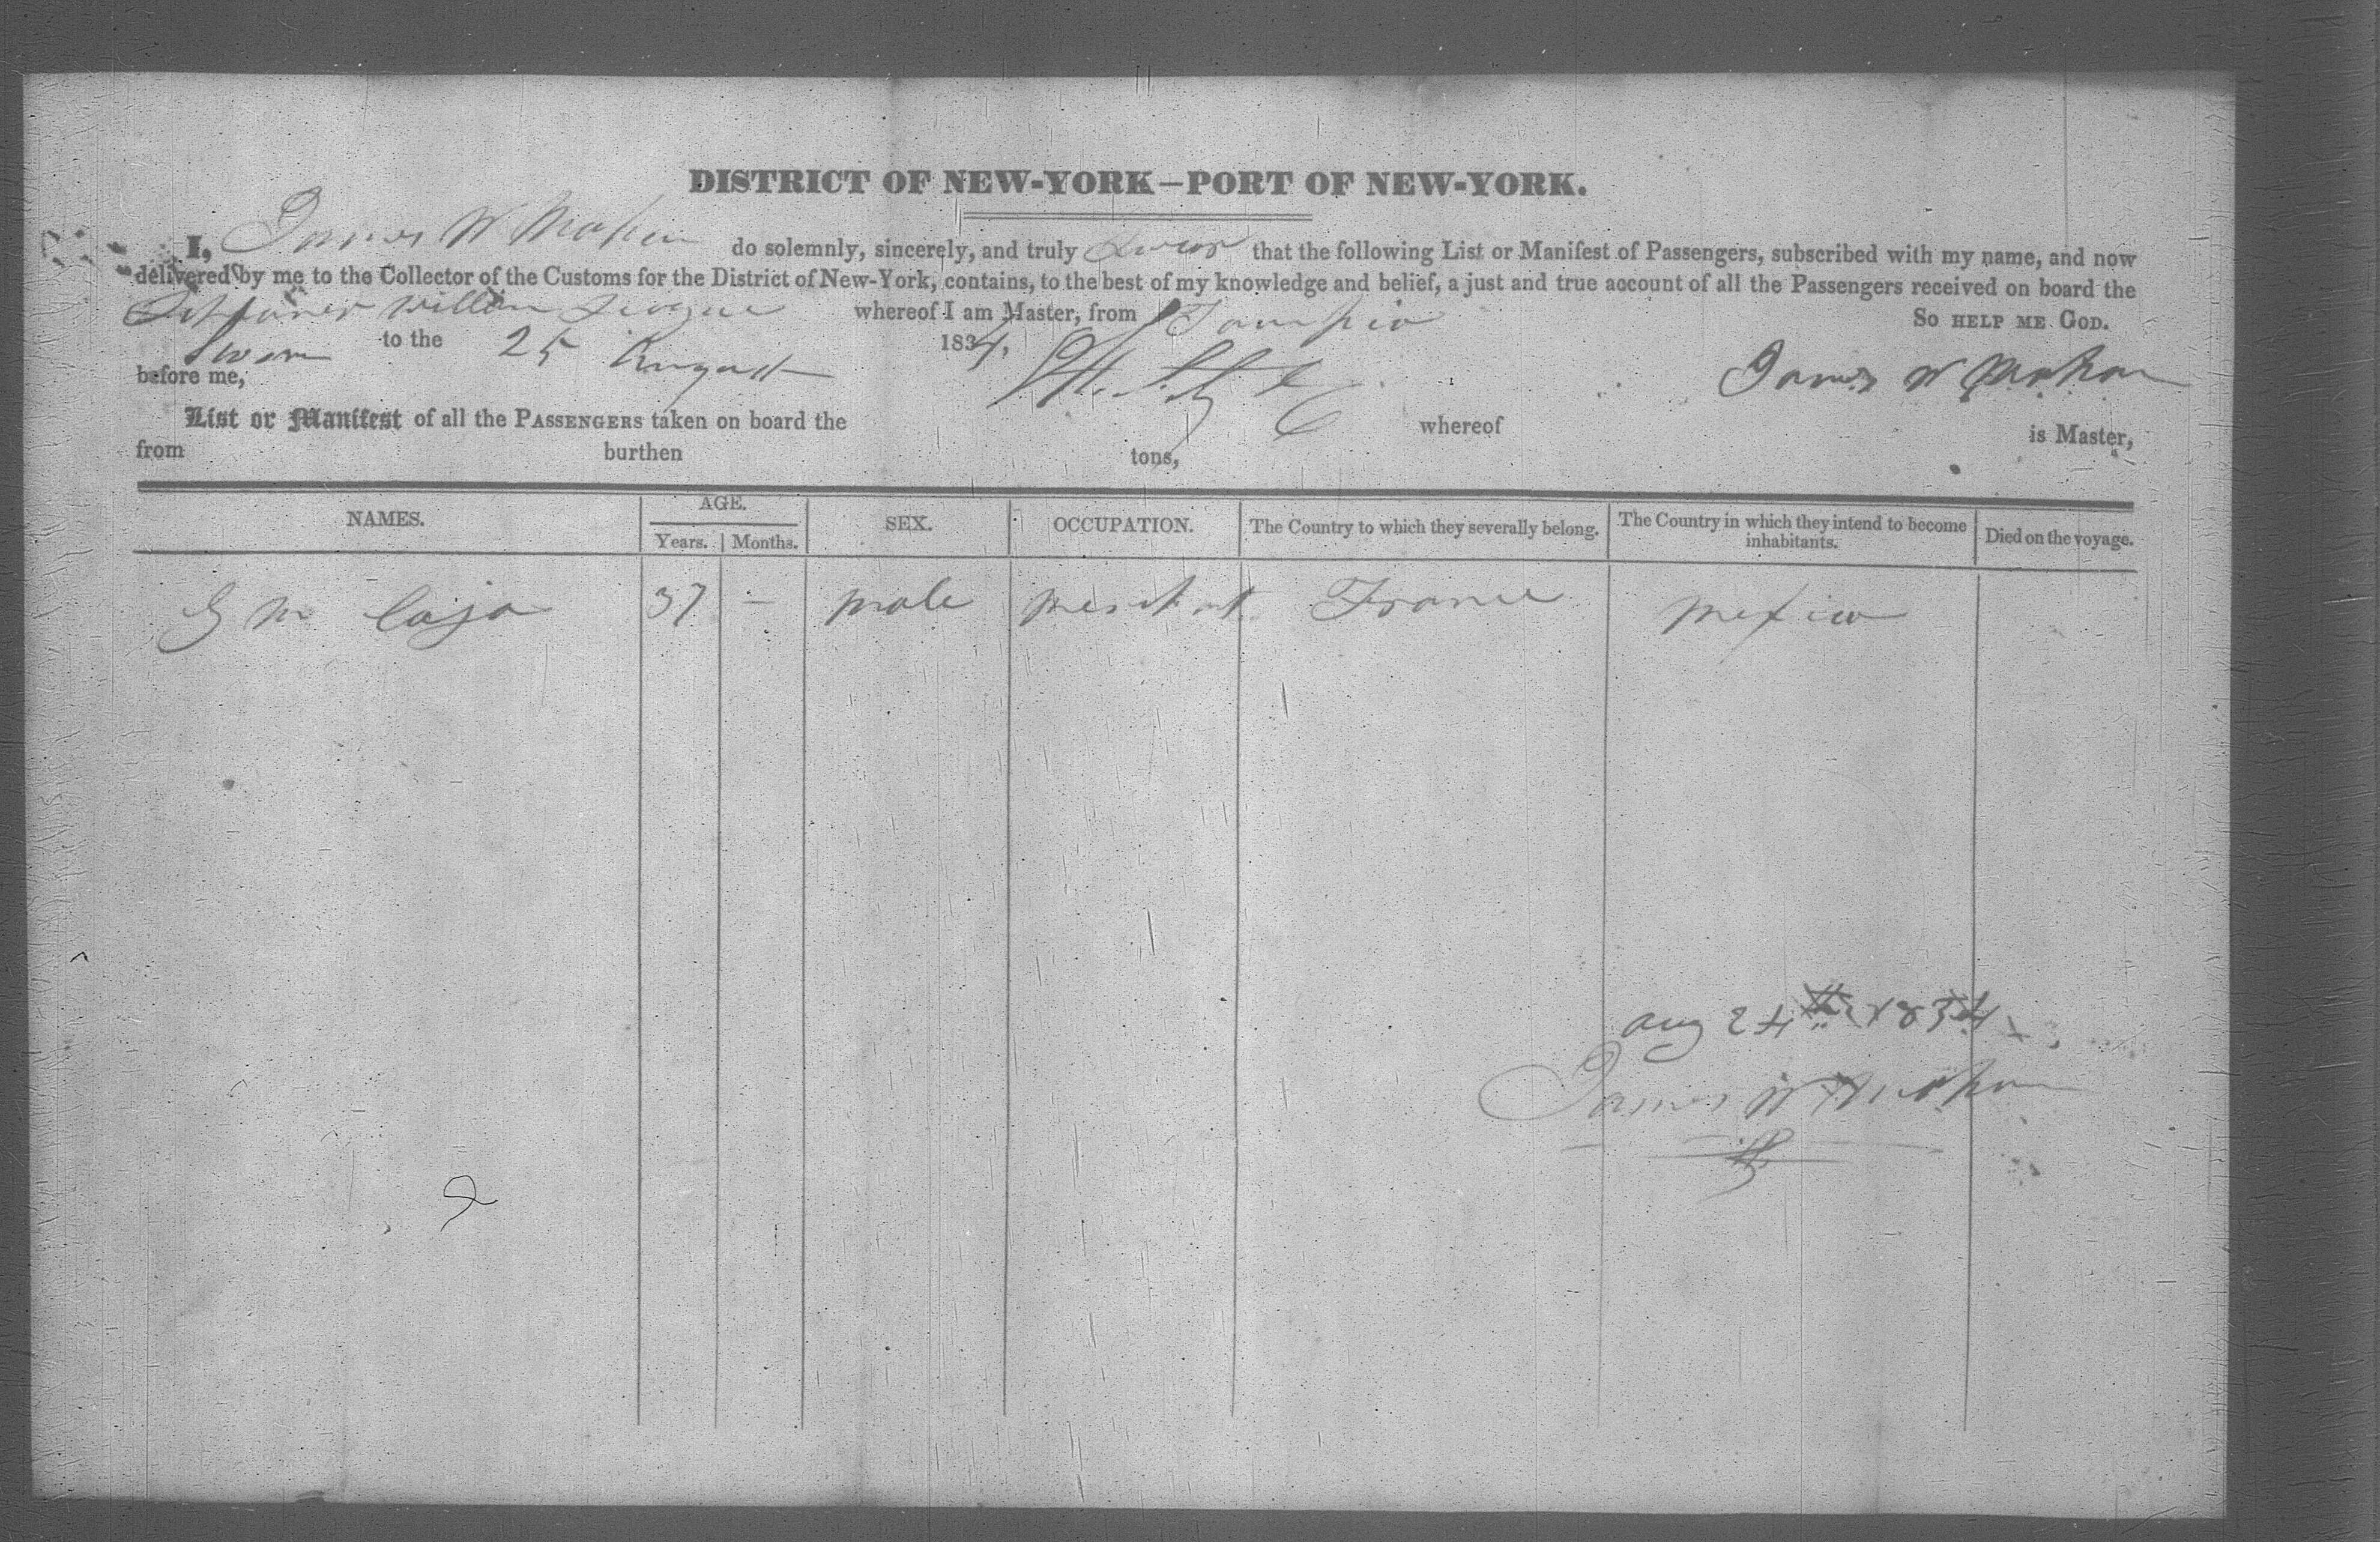 DISTRICT OF NEW-YORK—PORT OF NEW-YORK.
I, James W Mahan do solemnly, sincerely, and truly swear that the following List or Manifest of Passengers, subscribed with my name, and now
delivered by me to the Collector of the Customs for the District of New-York, contains, to the best of my knowledge and belief, a just and true account of all the Passengers received on board the
whereof I am Master, from Tampico So HELP ME GOD.
Sworn to the 25 August 1834, James W Mahan
before me,
List or Manifest of all the PASSENGERS taken on board the whereof is Master,
from burthen tons,
NAMES. AGE. SEX. OCCUPATION. The Country to which they severally belong. The Country in which they intend to become inhabitants. Died on the voyage.
Years. Months.
G M 37 – male merchant France Mexico
aug 24th 1834
James W Mahan